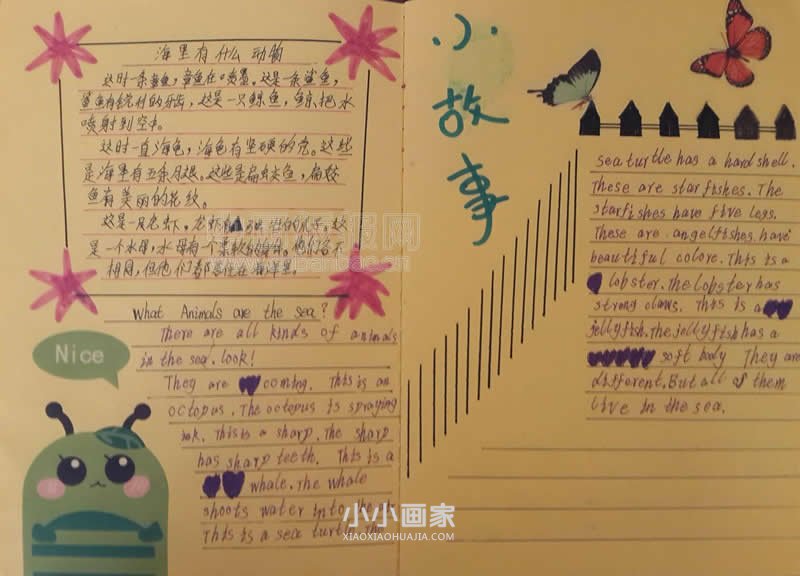 海里有什么动物
这时一条章鱼,章鱼在喷墨。这是一条鲨鱼,
鲨鱼有锐利的牙齿,这是一只鲸鱼,鲸把水
喷射到空中。
这时一直海龟,海龟有坚硬的壳。这些
是海里有五条
鱼有美丽的花纹。
这是一只龙虾
是一个水母,水母有个柔软的身体。他们各不
相同,但他们都居住在海洋里。
What Animals are the sea?
There are all kinds of animals
in the sea. look!
They are coming. This is an
octopus. The octopus is spraying
ink. This is a sharp. The sharp
has sharp teeth. This is a
whale. The whale
shoots water into the
This is a sea turtle. The
Nice
小故事
sea turtle has a hard shell.
These are starfishes. The
starfishes have five legs.
These are angelfishes. have
beautiful colore. This is a
lobster. The lobster has
strong claws. This is a
jellyfish. The jellyfish has a
soft body They are
different. But all of them
live in the sea.
小小画家
XIAOXIAOHUAJIA.COM